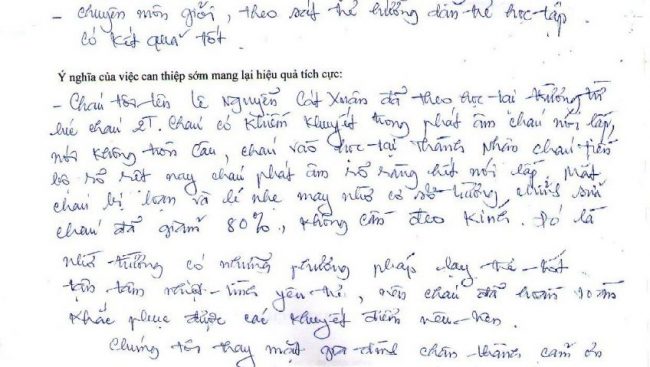 - chuyên môn giỏi, theo sát trẻ hướng dẫn trẻ học tập
có kết quả tốt.
Ý nghĩa của việc can thiệp sớm mang lại hiệu quả tích cực:
- Cháu tôi tên Lê Nguyễn Cát Xuân đã theo học tại trường từ
lúc cháu 2T. Cháu có khiếm khuyết trong phát âm cháu nói lắp,
nói không tròn câu, cháu vào học tại Thành Nhân cháu tiến
bộ rõ rệt nay cháu phát âm rõ ràng hết nói lắp, mắt
cháu bị loạn và lé nhẹ may nhờ có sở trường chỉnh sửa
cháu đã giảm 80%, không cần đeo kính. Đó là
nhờ trường có những phương pháp dạy trẻ tốt
tận tâm nhiệt tình yêu trẻ, nên cháu đã hoàn toàn
khắc phục được các khuyết điểm nêu trên.
Chúng tôi thay mặt gia đình chân thành cảm ơn